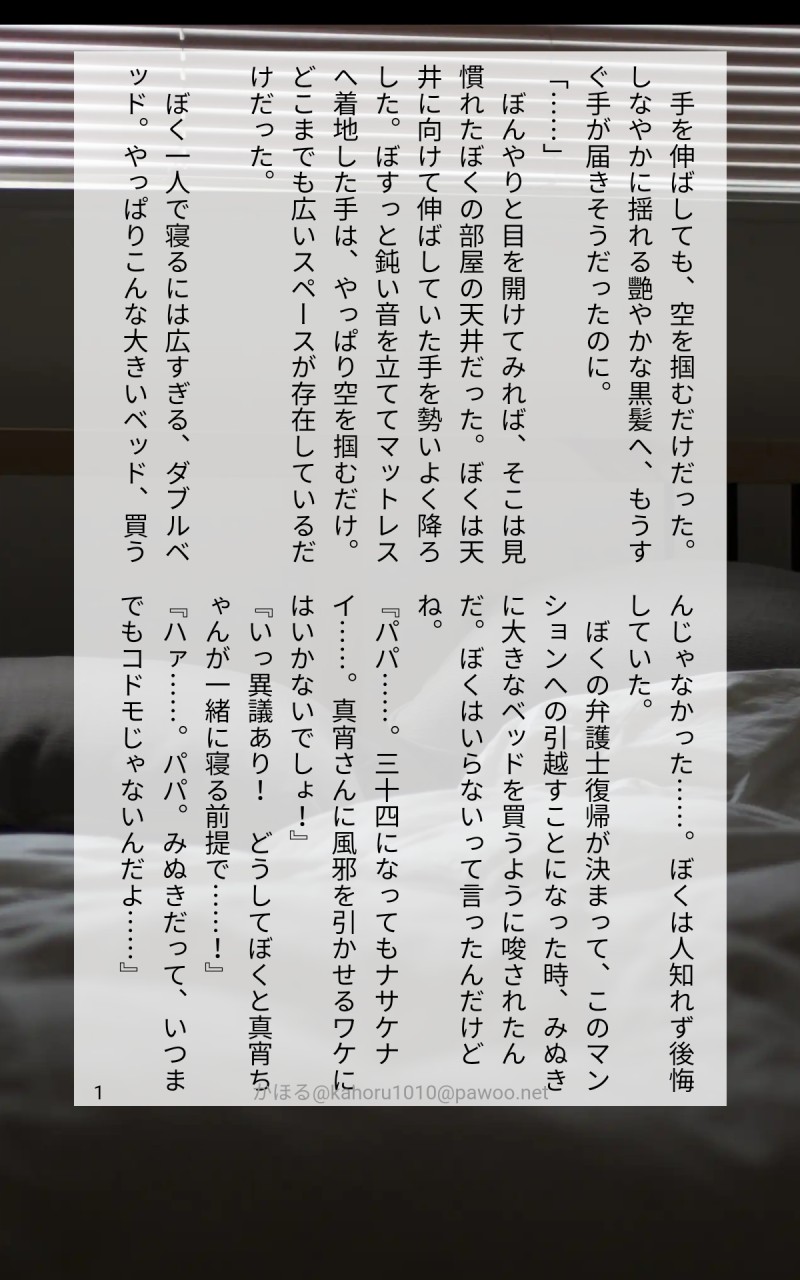 手を伸ばしても、空を掴むだけだった。
しなやかに揺れる艶やかな黒髪へ、もうす
ぐ手が届きそうだったのに。
「……」
　ぼんやりと目を開けてみれば、そこは見
慣れたぼくの部屋の天井だった。ぼくは天
井に向けて伸ばしていた手を勢いよく降ろ
した。ぼすっと鈍い音を立ててマットレス
へ着地した手は、やっぱり空を掴むだけ。
どこまでも広いスペースが存在しているだ
けだった。
　ぼく一人で寝るには広すぎる、ダブルベ
ッド。やっぱりこんな大きいベッド、買う
んじゃなかった……。ぼくは人知れず後悔
していた。
　ぼくの弁護士復帰が決まって、このマン
ションへの引越すことになった時、みぬき
に大きなベッドを買うように唆されたん
だ。ぼくはいらないって言ったんだけど
ね。
『パパ……。三十四になってもナサケナ
イ……。真宵さんに風邪を引かせるワケに
はいかないでしょ！』
『いっ異議あり！　どうしてぼくと真宵ち
ゃんが一緒に寝る前提で……！』
『ハァ……。パパ。みぬきだって、いつま
でもコドモじゃないんだよ……』
かほる@kahoru1010@pawoo.net
1